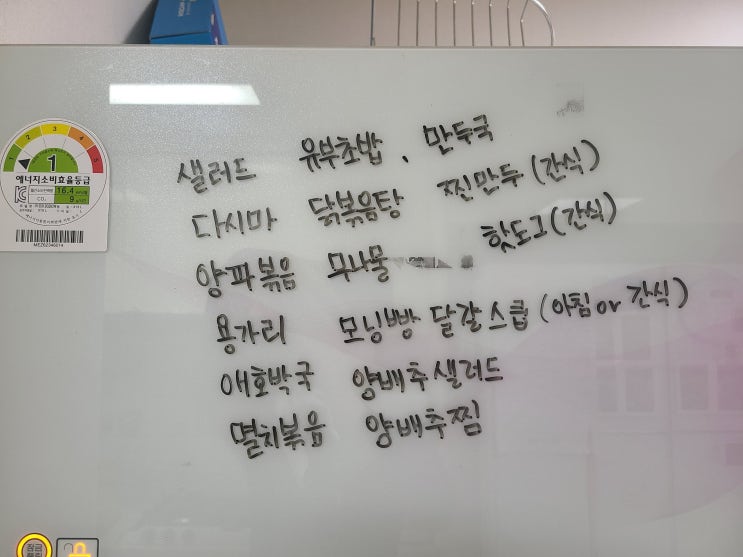 샐러드 유부초밥, 만두국
다시마 닭볶음탕 찐만두(간식)
양파볶음 무나물 핫도그(간식)
용가리 모닝빵 달걀스크럽(아침or간식)
애호박국 양배추샐러드
멸치볶음 양배추찜
1
에너지소비효율등급
16.4
CO₂ 9
MEZ62346014
잠금